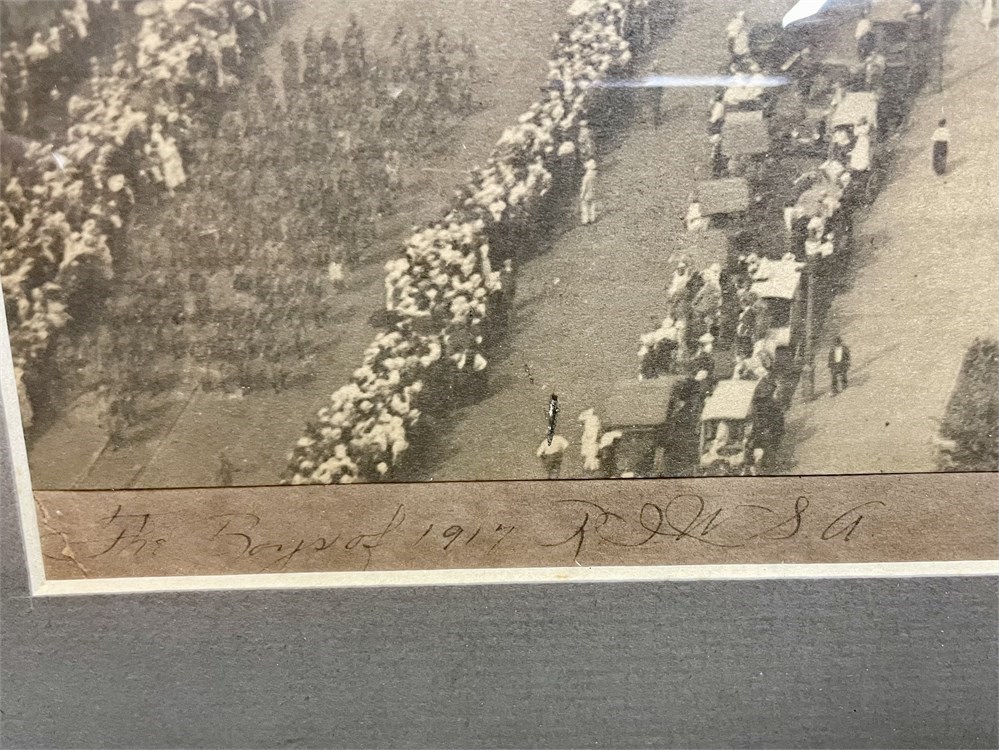 The Boys of 1917 R I W S. A.